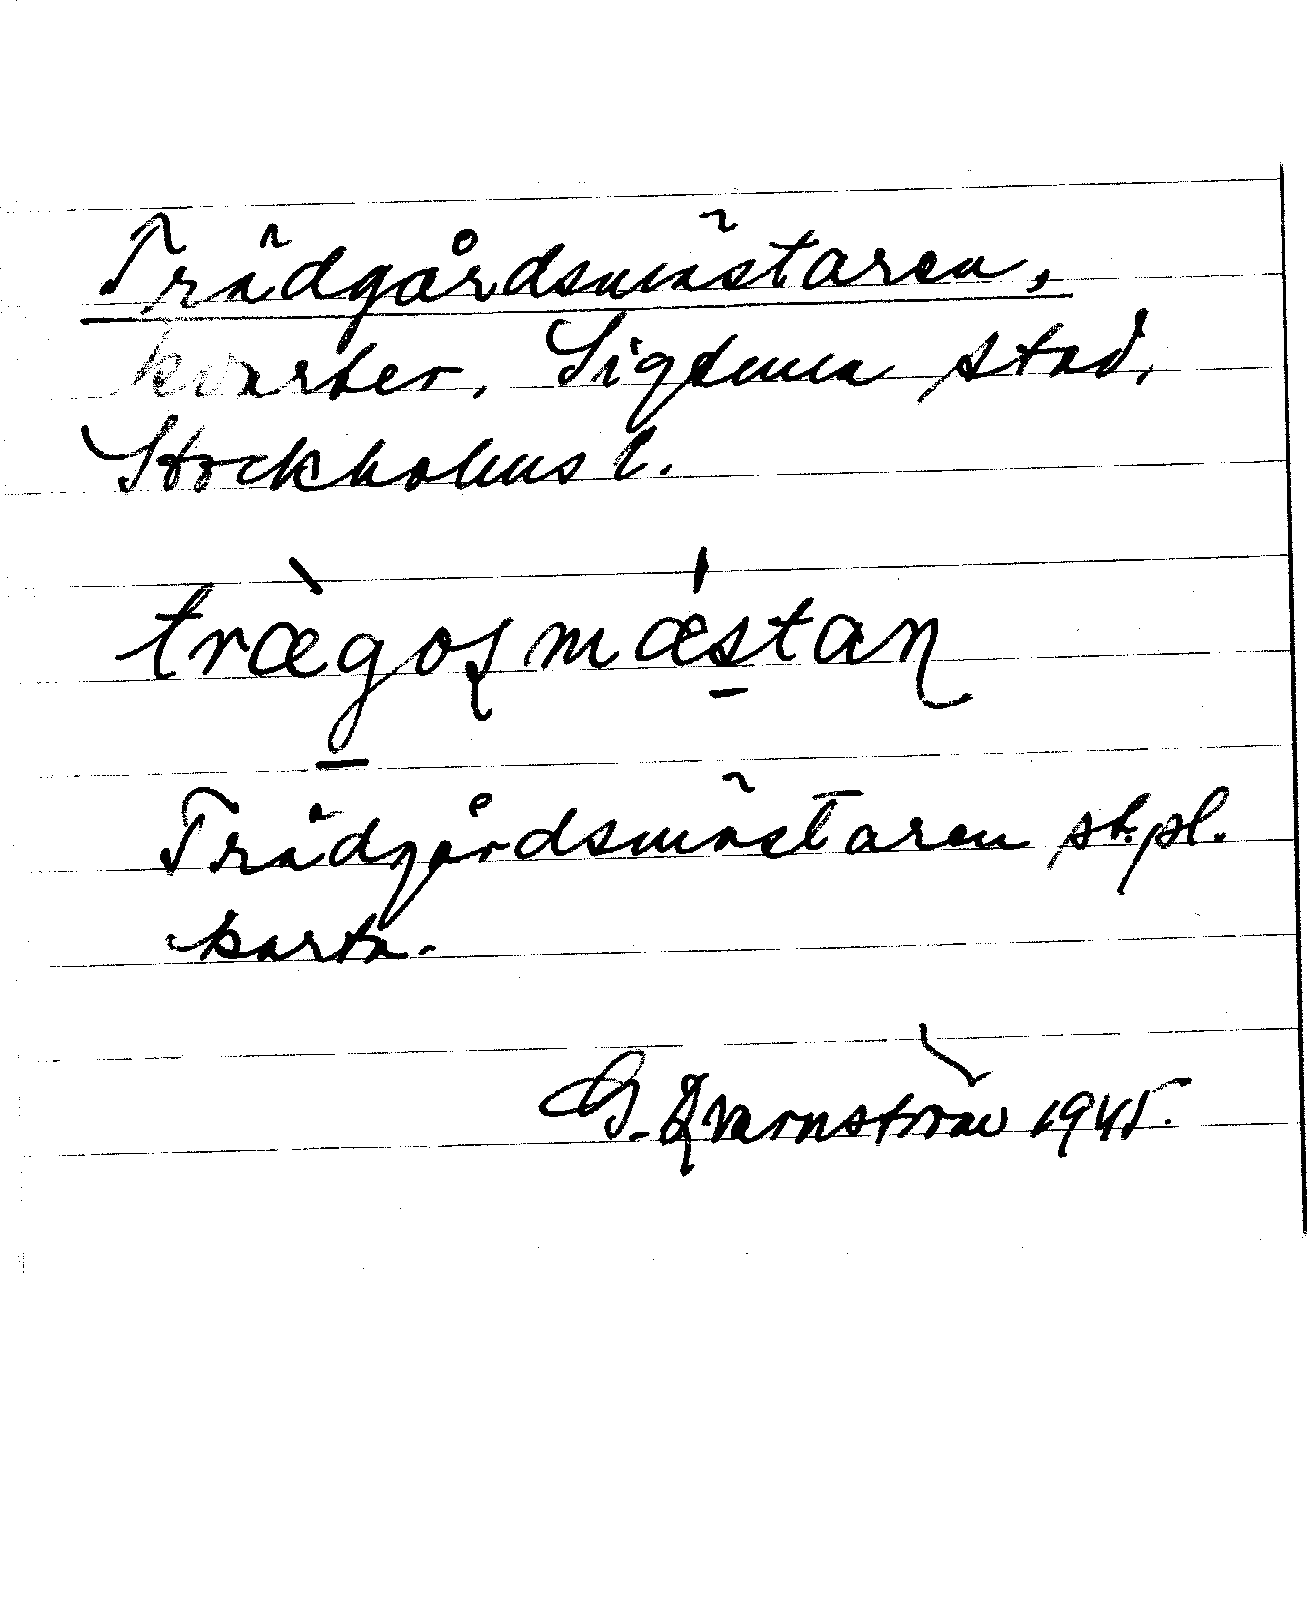 Trädgårdsmästaren,
kvarter, Sigtuna stad,
Stockholms l.
træ̀goʂmǽstaɳ
Trädgårdsmästaren st.pl.
karta.
G. Qvarnström 1945.